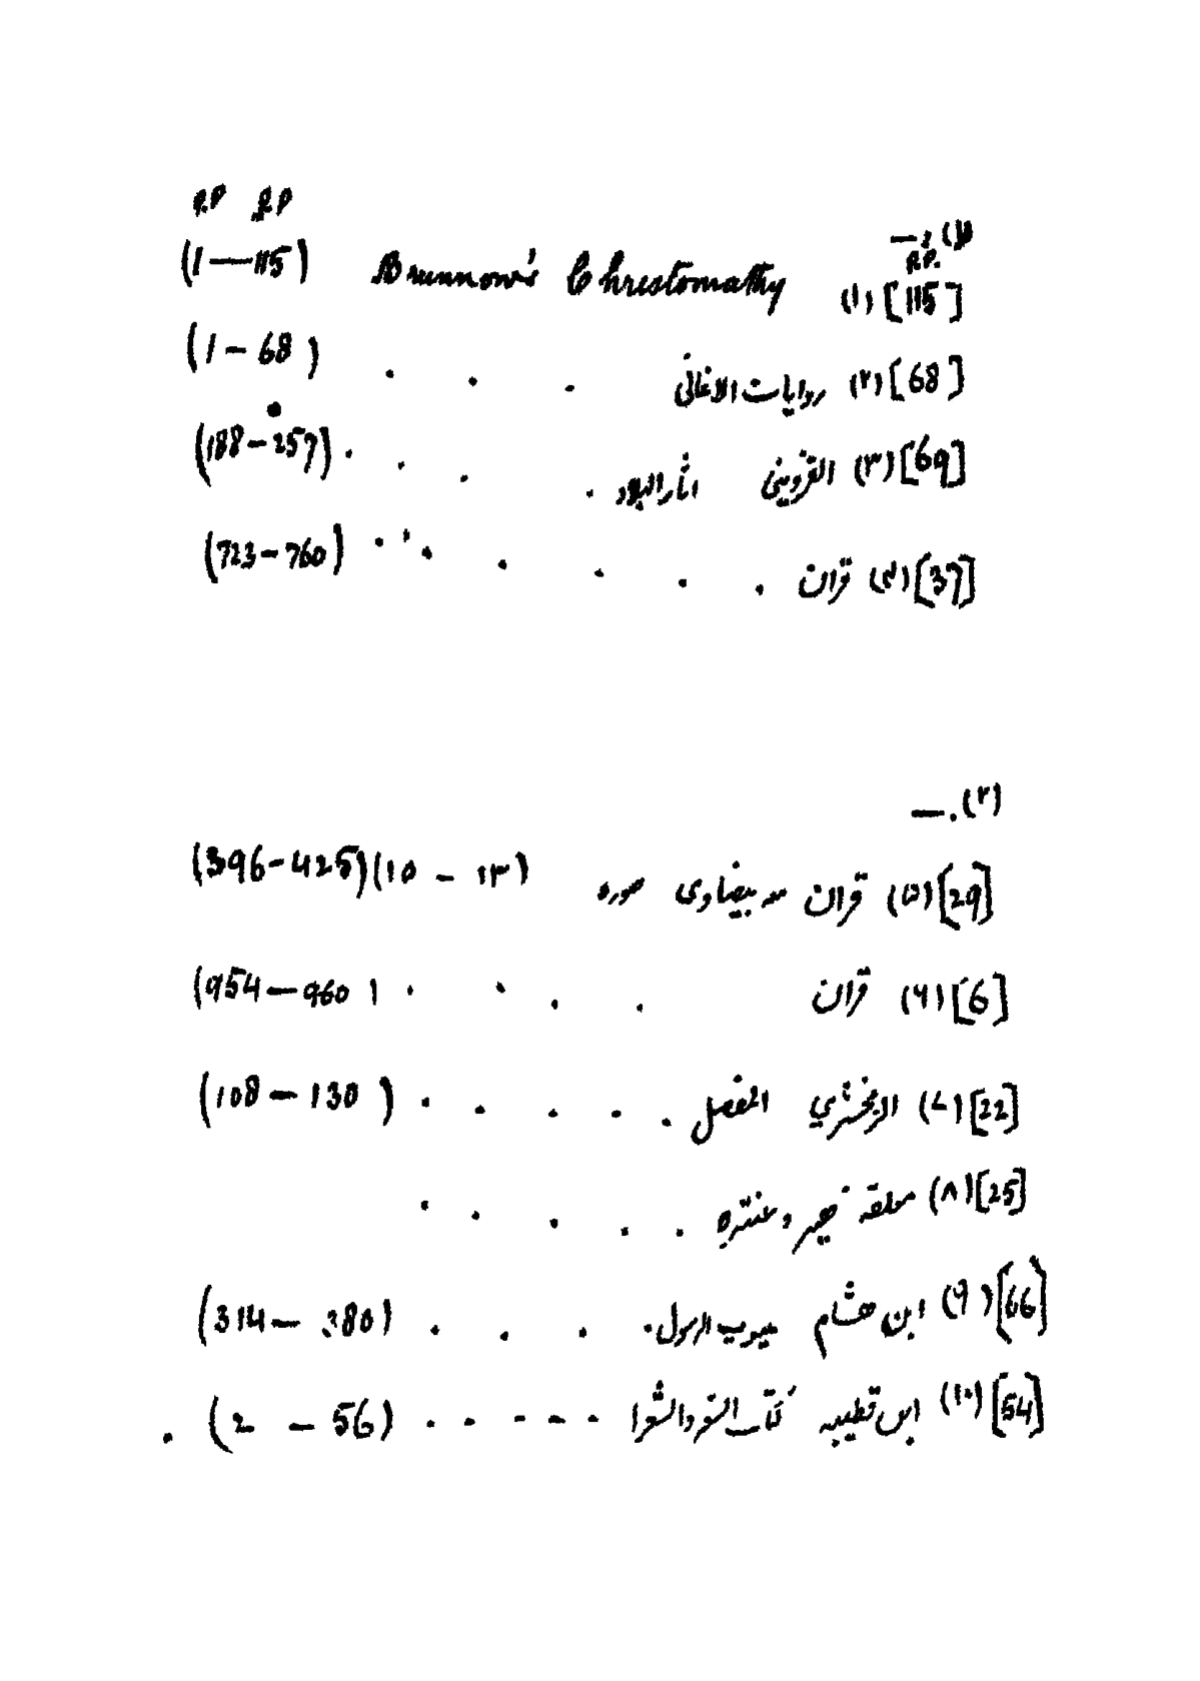 (١) —
P.P. P.P P.P
[115] (١) Brunnow's Chrestomathy (1—115)
[68] (٢) روایات الاغانی . . . (1-68)
[69] (٣) القزوینی اثار البلاد . . . . (188-257)
[37] (۴) قران . . . . . . . (723-760)
(٢) . —
[29] (۵) قران مع بیضاوی سوره (۱۰ - ۱۳) (396-425)
[6] (۶) قران . . . . (954-960)
[22] (۷) الزمخشري المفصل . . . . . (108-130)
[25] (۸) معلقه زهیر و عنتره . . . . .
[66] (۹) ابن هشام الرسول . . . . (314-380)
[54] (۱۰) ابن قطیبه کتاب الشعر والشعرا - - - - . . (2 - 56) .